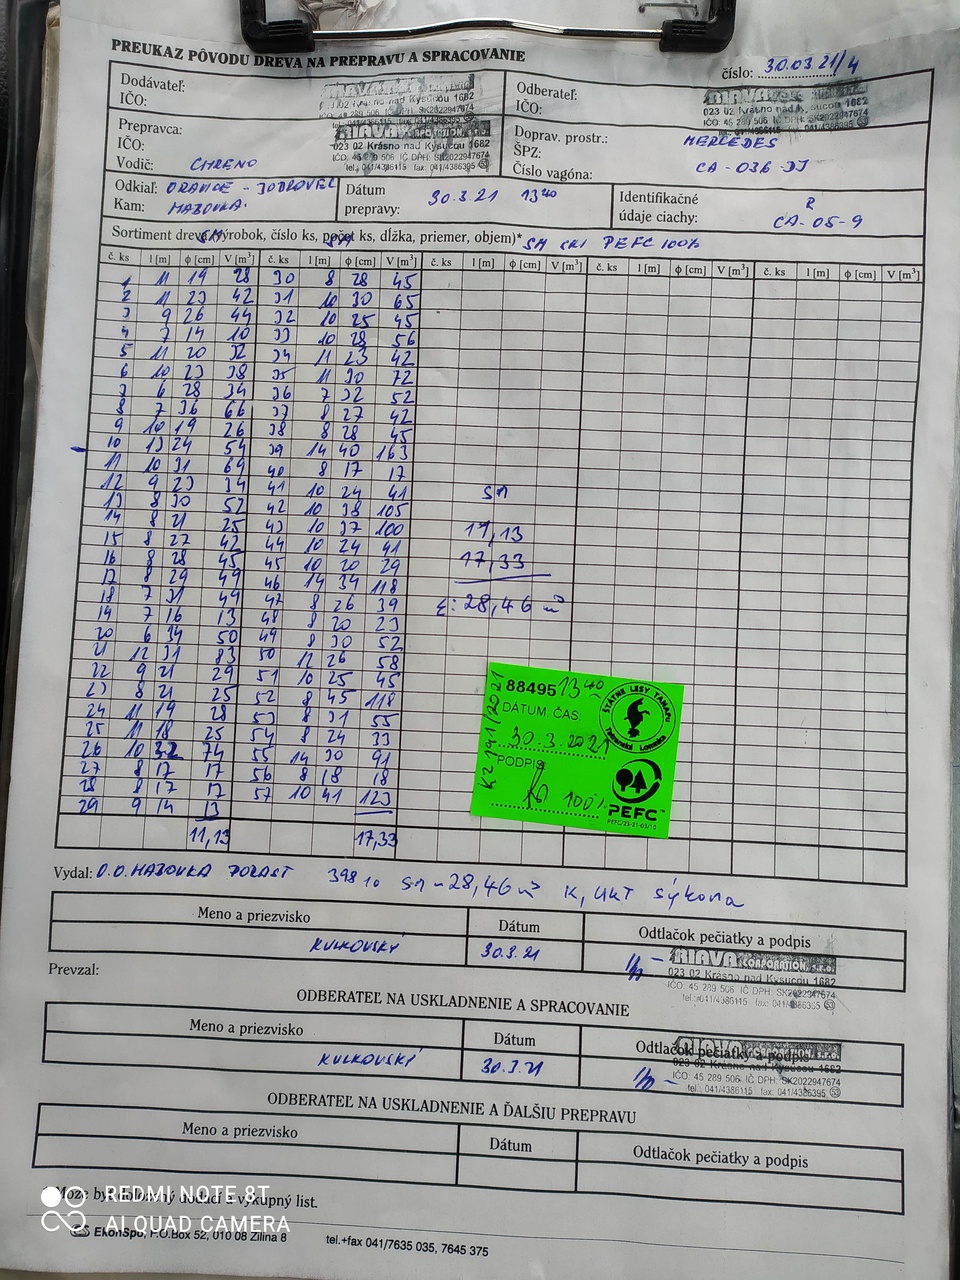 PREUKAZ PÔVODU DREVA NA PREPRAVU A SPRACOVANIE
číslo: 30.03.21/4
Dodávateľ:
IČO:
023 02 Krásno nad Kysucou 1682
Odberateľ:
IČO:
023 02 Krásno nad Kysucou 1682
IČO: 45 289 506 IČ DPH: SK2022947674
Prepravca:
IČO:
Vodič: CHRENO
RIAVA CORPORATION, s.r.o.
023 02 Krásno nad Kysucou 1682
IČO: 45 289 506 IČ DPH: SK2022947674
tel.: 041/4386115 fax: 041/4386395
Doprav. prostr.: MERCEDES
ŠPZ:
Číslo vagóna: CA-036-DJ
Odkiaľ: ORAVICE -
Kam:
Dátum
prepravy: 30.3.21 13 40
Identifikačné
údaje ciachy: R
CA-05-9
Sortiment dreva (výrobok, číslo ks, počet ks, dĺžka, priemer, objem)* SM PEFC 100%
č. ks l [m] ϕ [cm] V [m³] č. ks l [m] ϕ [cm] V [m³] č. ks l [m] ϕ [cm] V [m³] č. ks l [m] ϕ [cm] V [m³] č. ks l [m] ϕ [cm] V [m³]
1 11 19 28 30 8 28 45
2 11 23 42 31 10 30 65
3 9 26 44 32 10 25 45
4 7 14 10 33 10 28 56
5 11 20 32 34 11 23 42
6 10 23 38 35 11 30 72
7 6 28 34 36 7 32 52
8 7 36 66 37 8 27 42
9 10 19 26 38 8 28 45
10 13 24 54 39 14 40 163
11 10 31 69 40 8 17 17
12 9 23 34 41 10 24 41
13 8 30 52 42 10 38 105
14 8 21 25 43 10 37 100
15 8 27 42 44 10 24 41
16 8 28 45 45 10 20 29
17 8 29 49 46 14 34 118
18 7 31 49 47 8 26 39
19 7 16 13 48 8 20 23
20 6 34 50 49 8 30 52
21 12 31 83 50 12 26 58
22 9 21 29 51 10 25 45
23 8 21 25 52 8 45 118
24 11 19 28 53 8 31 55
25 11 18 25 54 8 24 33
26 10 32 74 55 14 30 91
27 8 17 17 56 8 18 18
28 8 17 17 57 10 41 123
29 9 14 13
11,13 17,33
SM
11,13
17,33
Σ: 28,46 m³
88495 13 40
DÁTUM, ČAS:
30.3.2021
PODPIS:
100%
KZ 191/2021
ŠTÁTNE LESY TANAPU
Tatranská Lomnica
PEFC
Vydal: O.O. HABOVKA PORAST 398 10 SM - 28,46 m³ sýkora
Meno a priezvisko Dátum Odtlačok pečiatky a podpis
KULKOVSKÝ 30.3.21
RIAVA CORPORATION, s.r.o.
023 02 Krásno nad Kysucou 1682
IČO: 45 289 506 IČ DPH: SK2022947674
tel.: 041/4386115 fax: 041/4386395
Prevzal:
ODBERATEĽ NA USKLADNENIE A SPRACOVANIE
Meno a priezvisko Dátum Odtlačok pečiatky a podpis
KULKOVSKÝ 30.3.21
023 02 Krásno nad Kysucou 1682
IČO: 45 289 506 IČ DPH: SK2022947674
tel.: 041/4386115 fax: 041/4386395
ODBERATEĽ NA USKLADNENIE A ĎALŠIU PREPRAVU
Meno a priezvisko Dátum Odtlačok pečiatky a podpis
dodací a výkupný list.
REDMI NOTE 8T
AI QUAD CAMERA
EkonSpo, P.O.Box 52, 010 08 Žilina 8 tel.+fax 041/7635 035, 7645 375